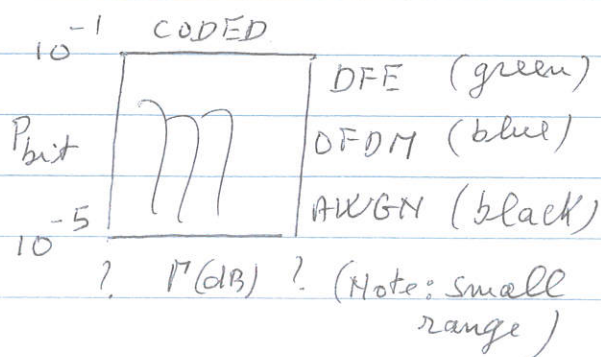 CODED
10^-1
DFE (green)
P_bit
OFDM (blue)
AWGN (black)
10^-5
? Γ(dB) ? (Note: small
range)